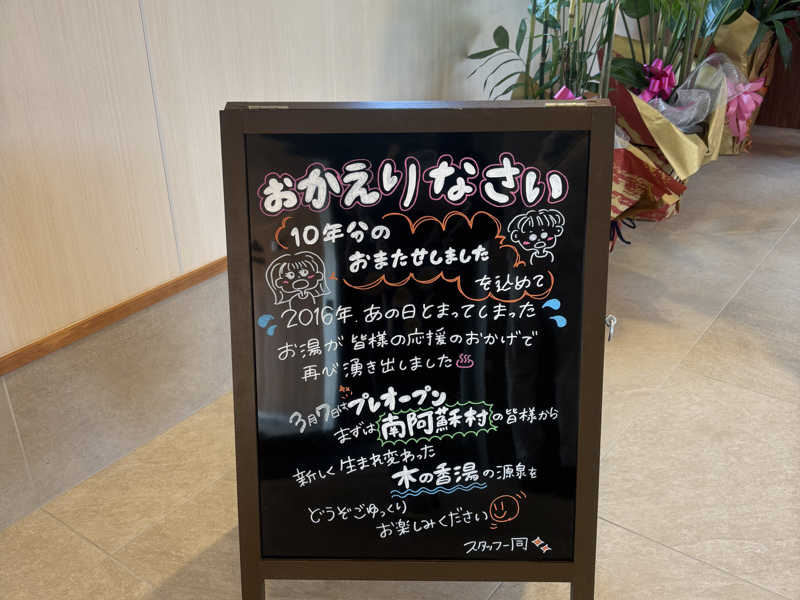 おかえりなさい
10年分の
おまたせしました
を込めて
2016年、あの日とまってしまった
お湯が皆様の応援のおかげで
再び湧き出しました♨
3月7日はプレオープン
まずは南阿蘇村の皆様から
新しく生まれ変わった
木の香湯の源泉を
どうぞごゆっくり
お楽しみください
スタッフ一同